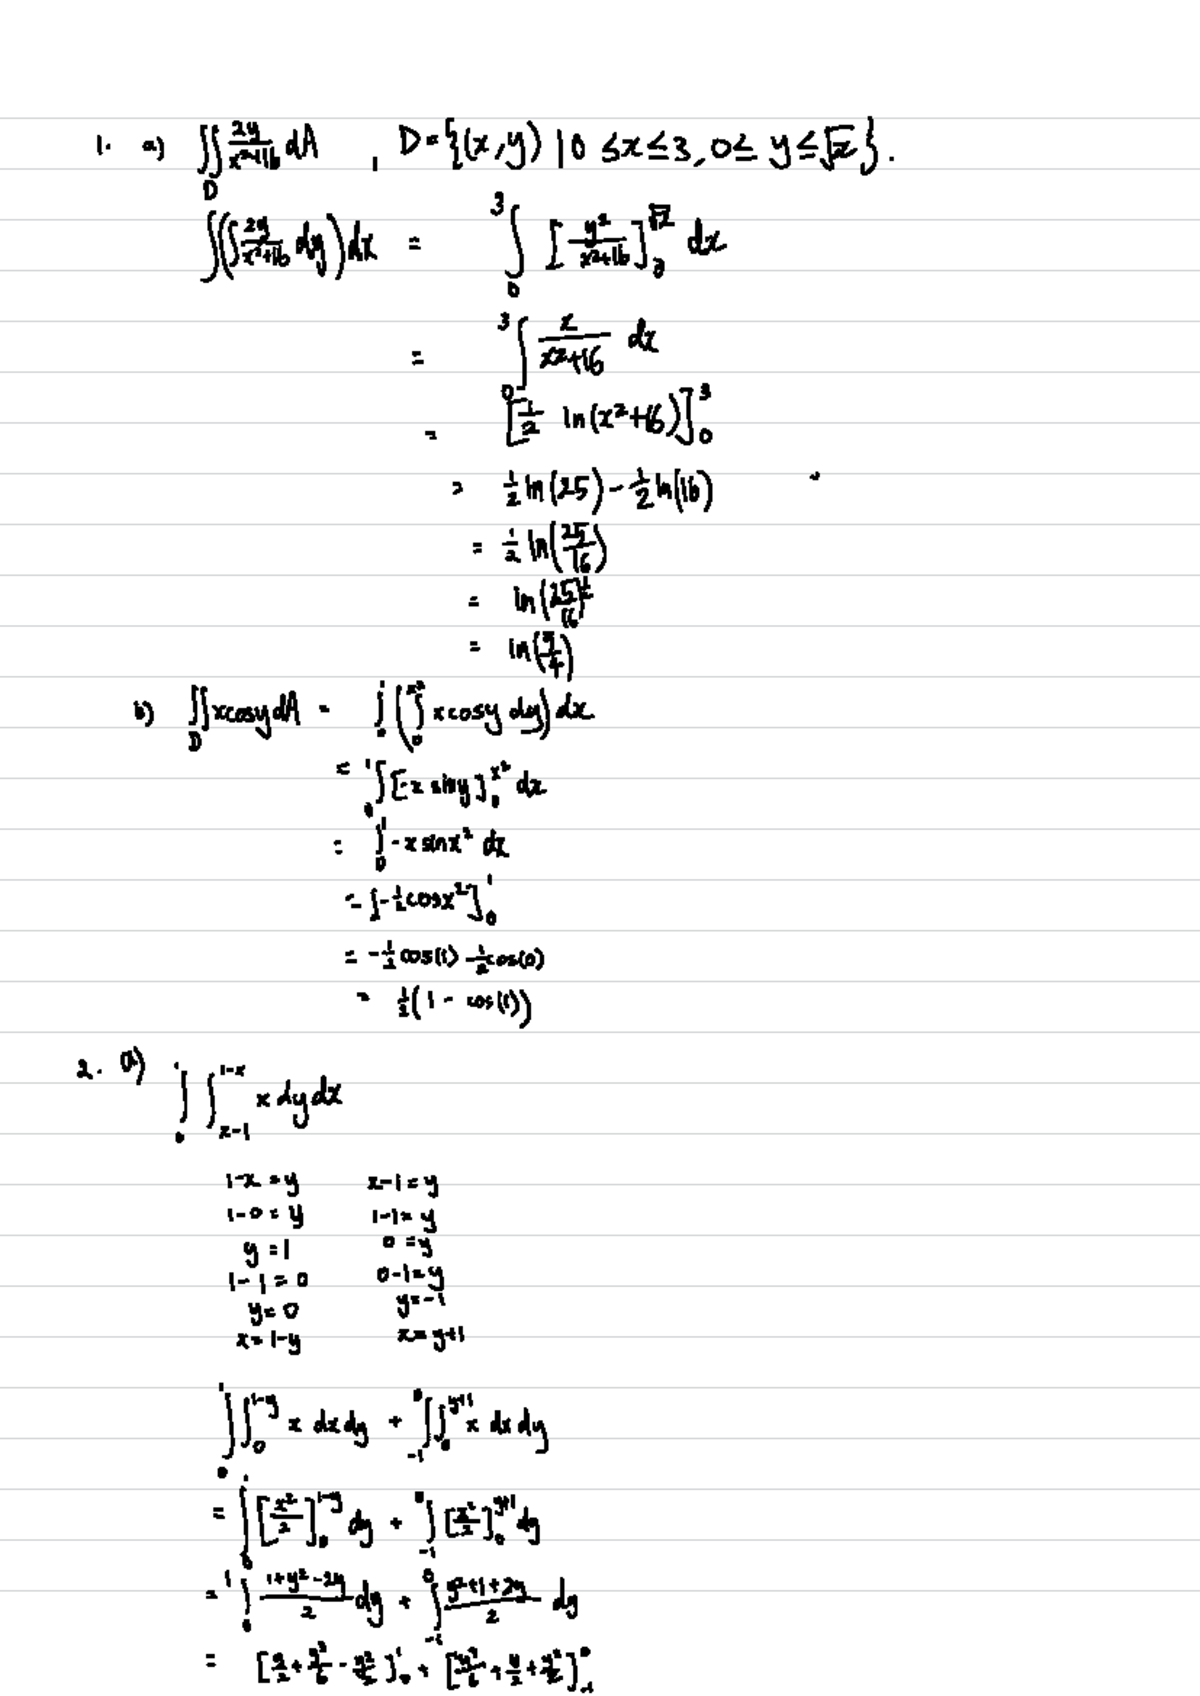 1. a) ∬_D 2y/(x²+16) dA , D={(x,y) | 0 ≤x≤3, 0≤ y≤√x}.
∫(∫ 2y/(x²+16) dy) dx = ∫_0^3 [y²/(x²+16)]_0^√x dx
= ∫_0^3 x/(x²+16) dx
= [1/2 ln(x²+16)]_0^3
= 1/2 ln(25) - 1/2 ln(16)
= 1/2 ln(25/16)
= ln(25/16)^1/2
= ln(5/4)
b) ∬_D xcosy dA = ∫_0^1 (∫_0^x² xcosy dy) dx
= ∫_0^1 [-x siny]_0^x² dx
= ∫_0^1 -x sinx² dx
= [-1/2 cosx²]_0^1
= -1/2 cos(1) - 1/2 cos(0)
= 1/2(1 - cos(1))
2. a) ∫_0^1 ∫_x-1^1-x x dy dx
1-x = y x-1 = y
1-0 = y 1-1 = y
y = 1 0 = y
1-1 = 0 0-1 = y
y = 0 y = -1
x = 1-y x = y+1
∫_0^1 ∫_0^1-y x dx dy + ∫_-1^0 ∫_0^y+1 x dx dy
= ∫_0^1 [x²/2]_0^1-y dy + ∫_-1^0 [x²/2]_0^y+1 dy
= ∫_0^1 (1+y²-2y)/2 dy + ∫_-1^0 (y²+1+2y)/2 dy
= [y/2 + y³/6 - y²/2]_0^1 + [y³/6 + y/2 + y²/2]_-1^0